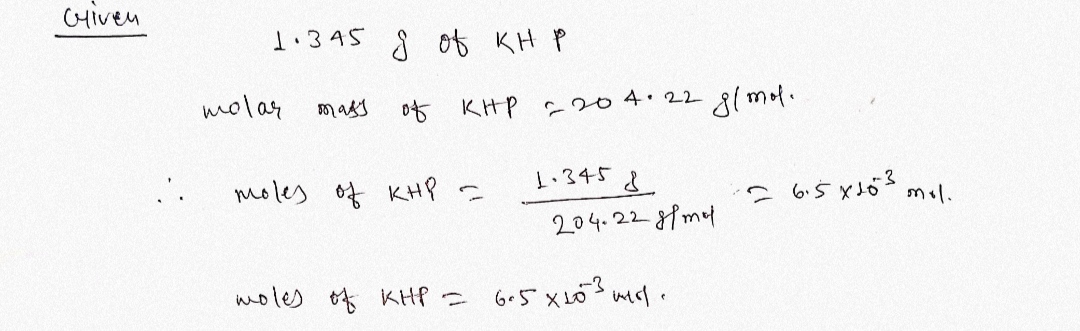 Given
1.345 g of KHP
molar mass of KHP = 204.22 g/mol.
∴ moles of KHP = 1.345 g / 204.22 g/mol = 6.5 x 10⁻³ mol.
moles of KHP = 6.5 x 10⁻³ mol.